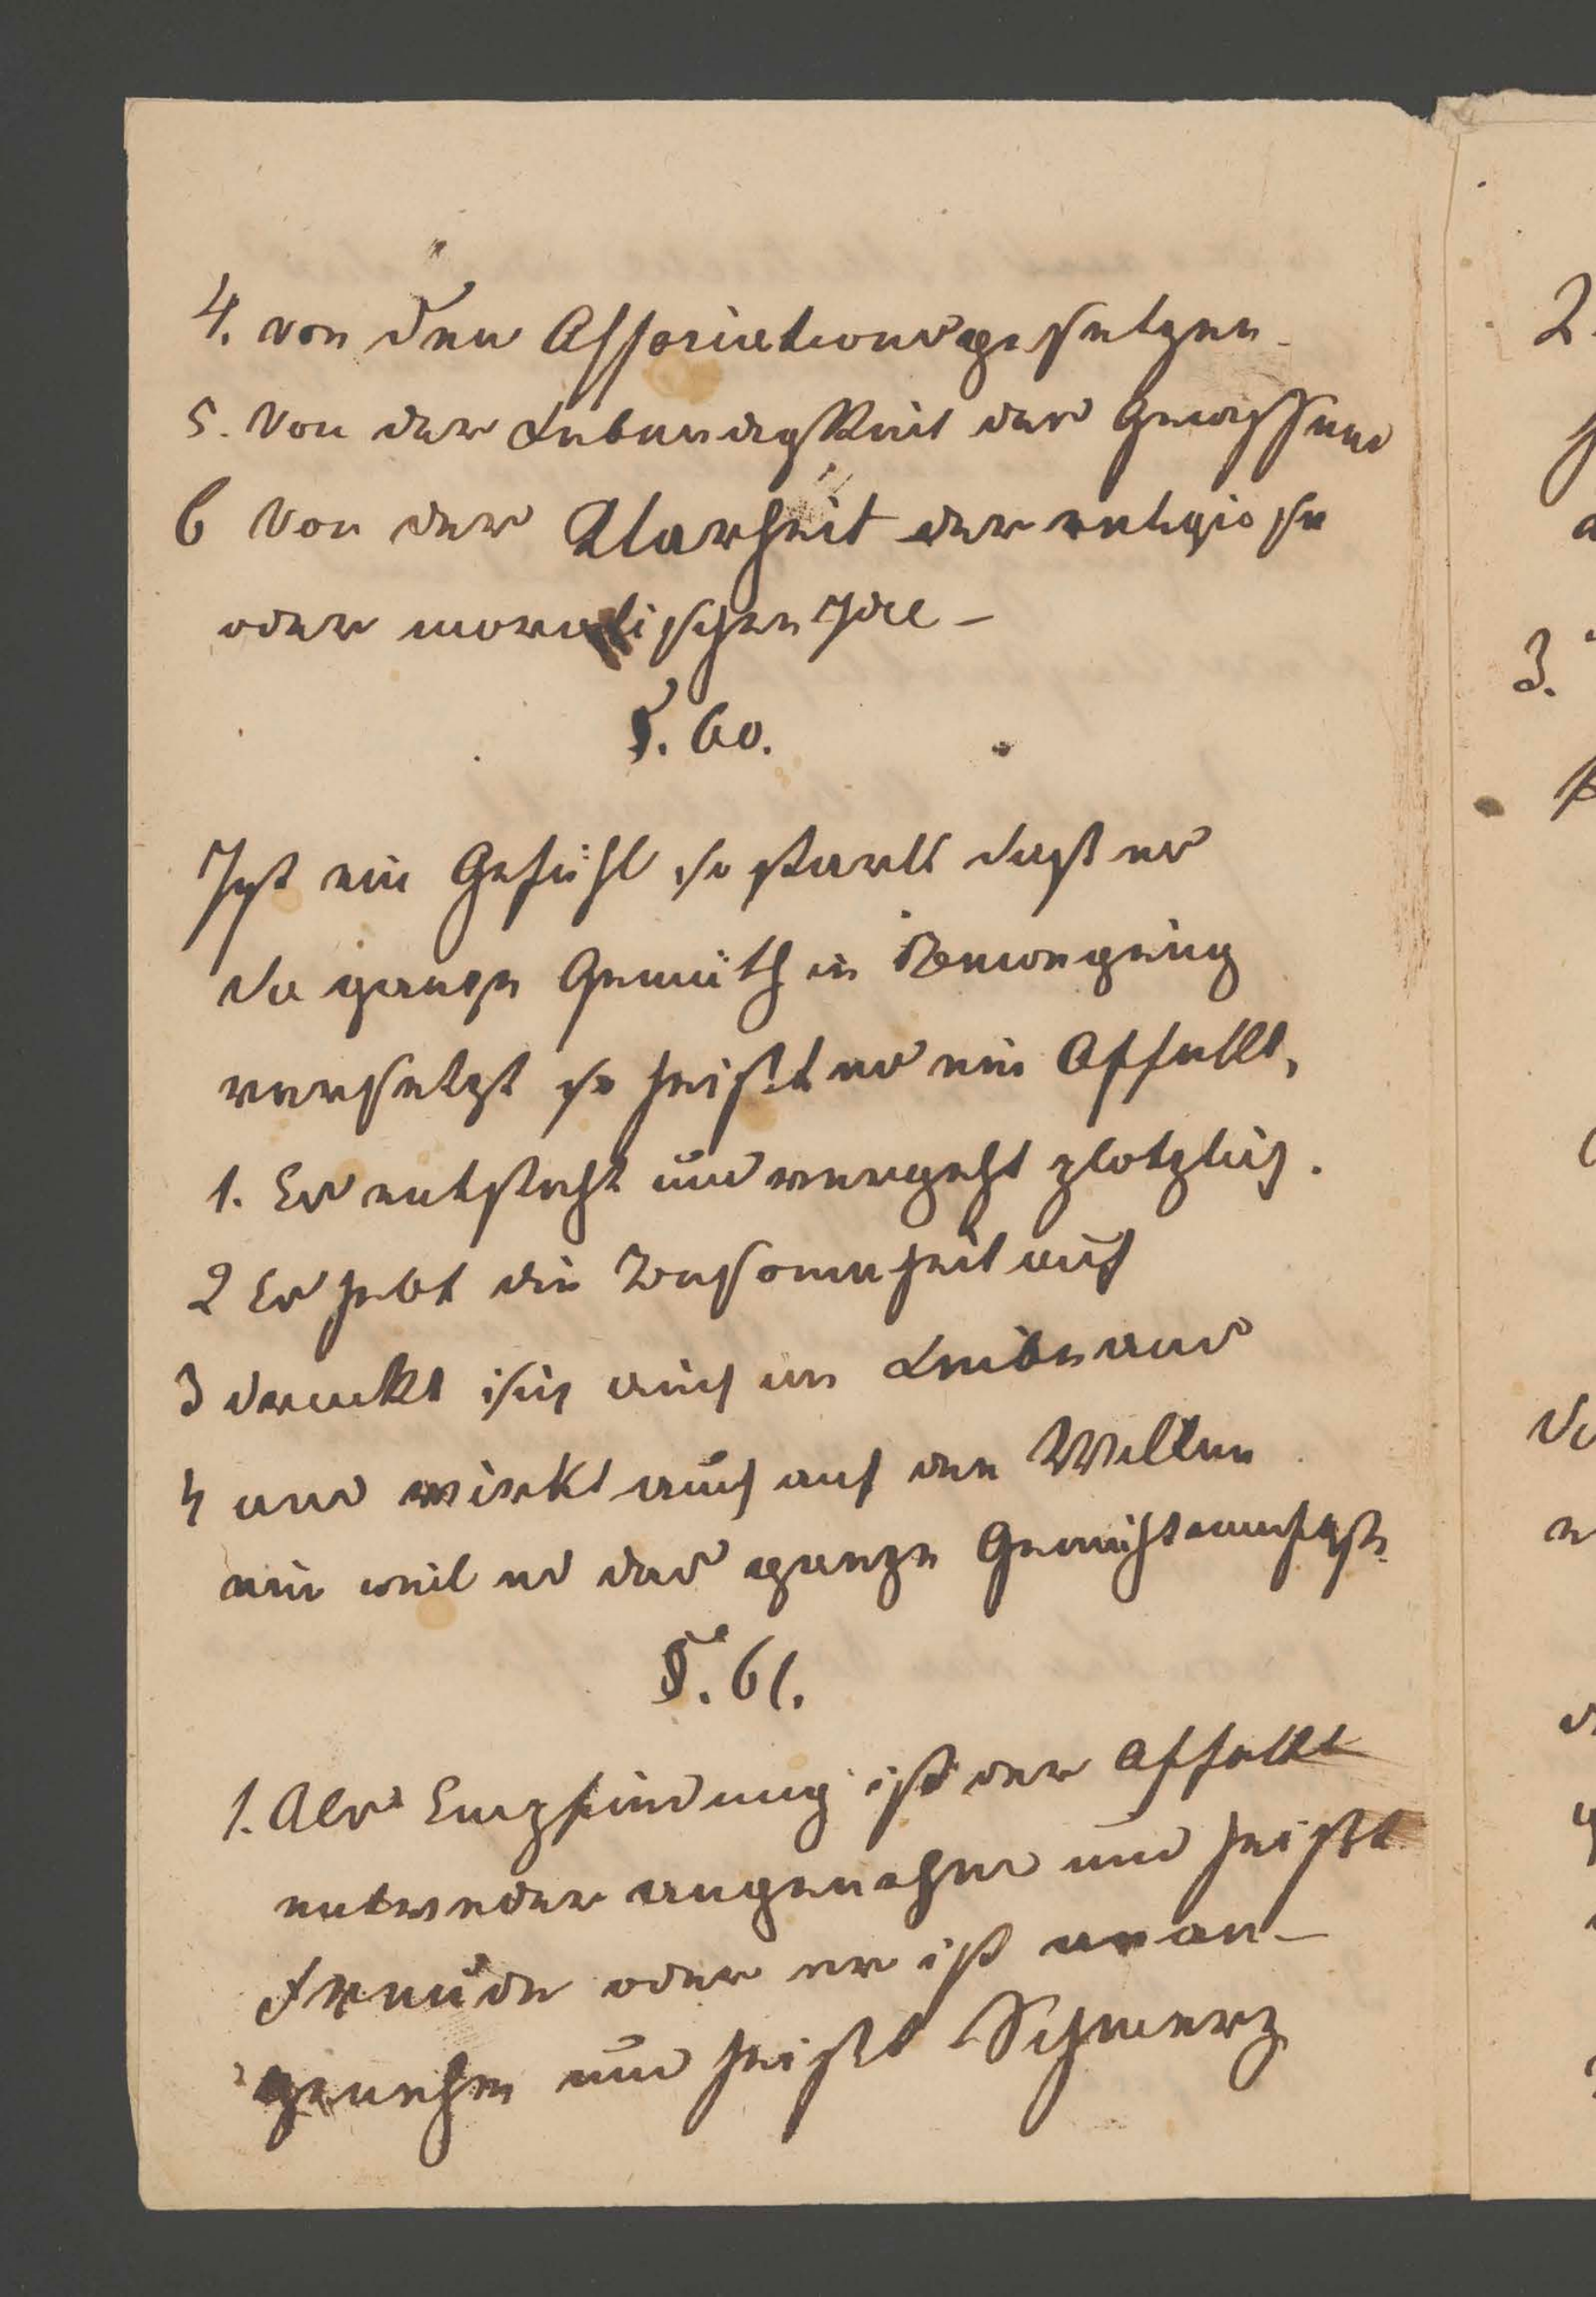 4. von den Associationsgesetzen.
5. Von der Lebendigkeit des Gewissens
6 Von der Klarheit der religiose
oder moralischen Idee –
§. 60.
Ist ein Gefühl so starkt daß es
da ganze Gemüth in Bewegung
versetzt so heißt es ein Affekt,
1. Es entsteht und vergeht plotzlich.
2 Es hebt die Besonnheit auf
3 druckt sich auch im Leibe aus
4 und wirkt auch auf den Willen
ein weil es das ganze Gemüht umfaßt.
§. 61.
1. Als Empfindung ist der Affekt
entweder angenehm und heißt
Freude oder er ist unan-
genehm und heißt Schmerz
2
3.